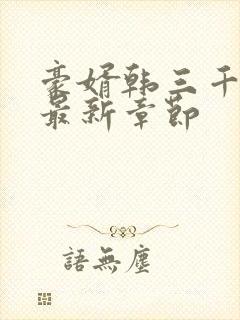 豪婿韩三千
最新章節
語無塵